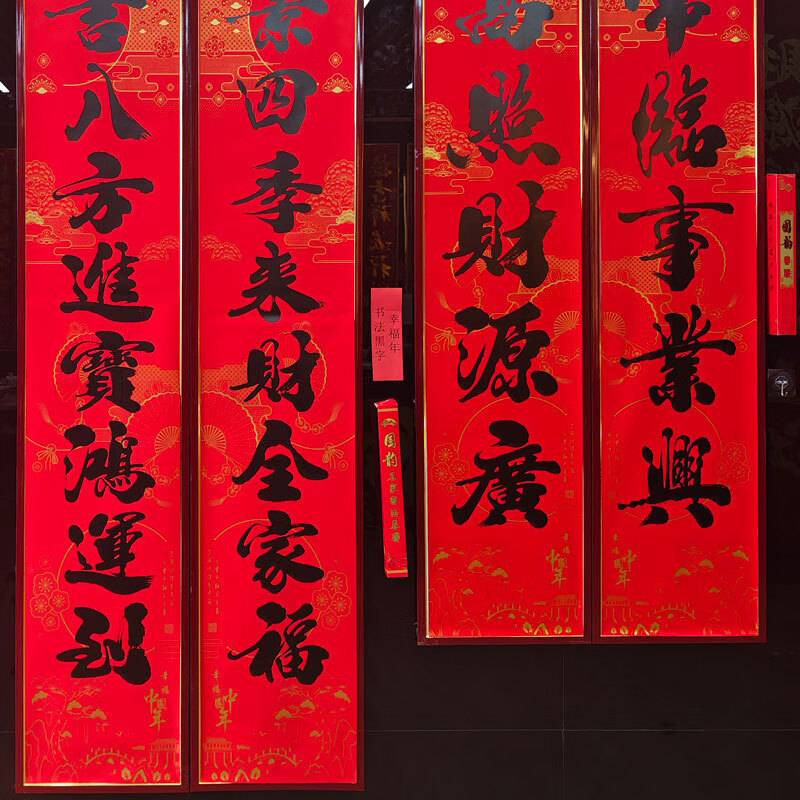 常臨事業興
高照財源廣
四季来財全家福
八方進寶鴻運到
幸福年
书法黑字
国韵
国韵
幸福
中国年
幸福
中国年
幸福
中国年
幸福
中国年